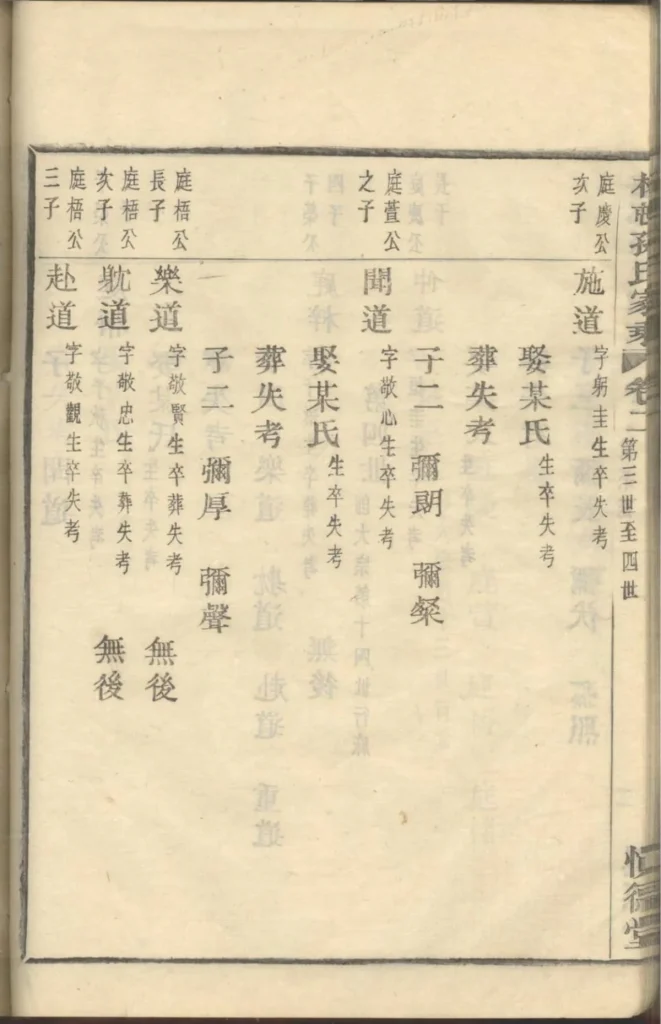 孫氏家乘 卷二 第三世至四世
恒德堂
庭慶公
次子
施道 字躬圭生卒失考
娶某氏 生卒失考
葬失考
子二 彌朗 彌粲
庭萱公
之子
聞道 字敬心生卒失考
娶某氏 生卒失考
葬失考
子二 彌厚 彌聲
庭梧公
長子
樂道 字敬賢生卒葬失考 無後
庭梧公
次子
躭道 字敬忠生卒葬失考 無後
庭梧公
三子
赴道 字敬觀生卒失考